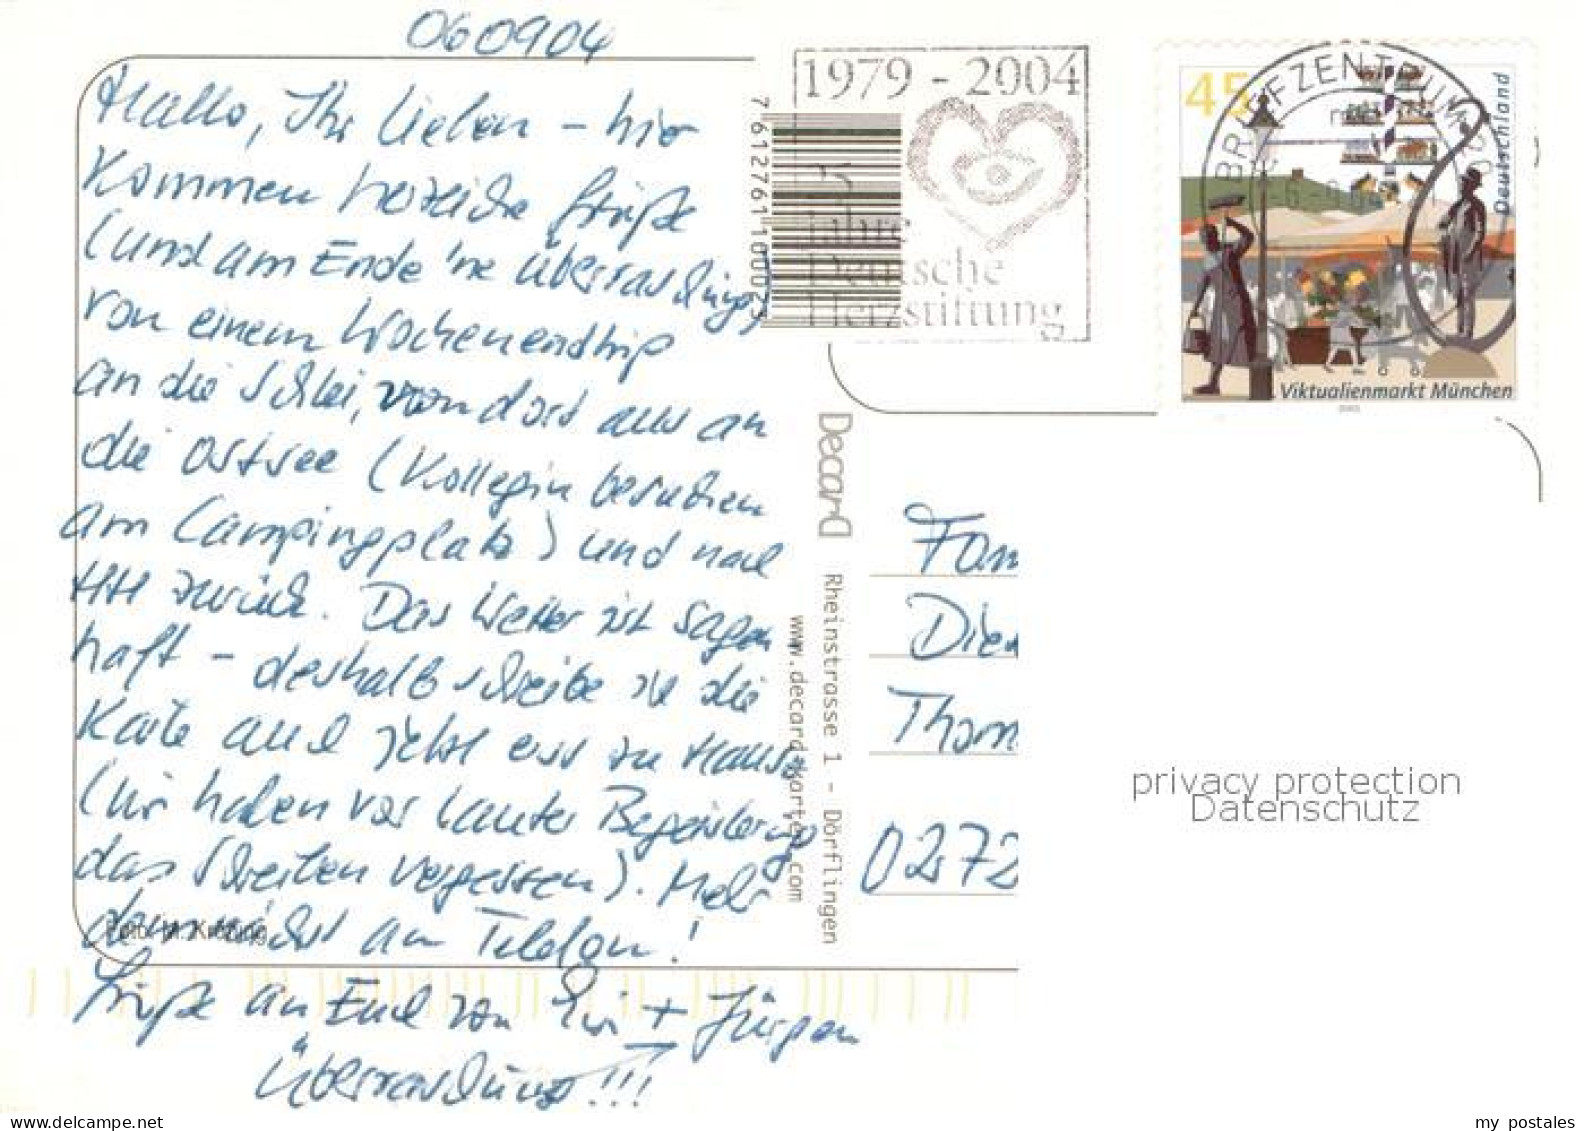 060904
Hallo, Ihr Lieben – hier
kommen herzliche Grüße
(und am Ende 'ne Überraschung)
von einem Wochenendtrip
an die Schlei, von dort aus an
die Ostsee (Kollegin besuchen
am Campingplatz) und nach
HH zurück. Das Wetter ist sagen
haft – deshalb schreibe ich die
Karte auch jetzt erst zu Hause
(wir haben vor lauter Begeisterung
das Schreiben vergessen). Mehr
demnächst am Telefon!
Grüße an Euch von + Jürgen
Überraschung!!!
Foto: M.
7 612761 100025
1979 - 2004
25
Jahre
Deutsche
Herzstiftung
BRIEFZENTRUM
45
Deutschland
Viktualienmarkt München
2003
Decard
Rheinstrasse 1 - Dörflingen
www.decard-karten.com
Fam
Die
Thom
0272
privacy protection
Datenschutz
www.delcampe.net
my_postales